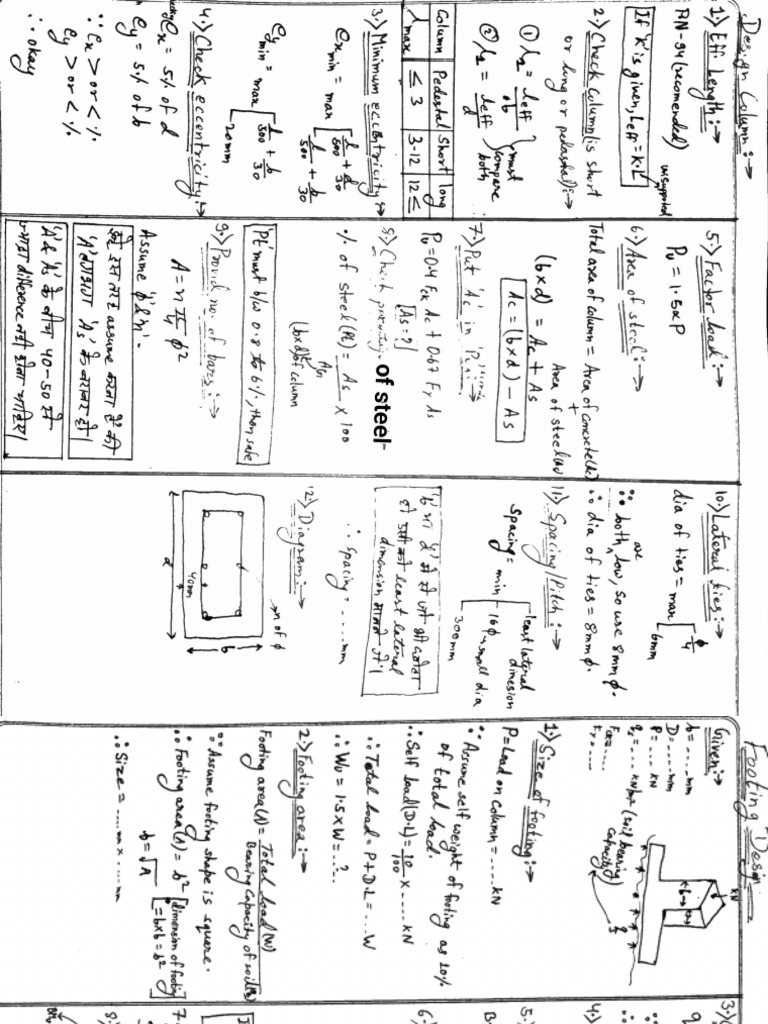 Design Column :→
1.) Eff. Length :→
RN-94 (recomended)
unsupported
If 'K' is given, Leff = K·L
2.) Check Column (is short
or long or pedastal) :→
① λ₁ = leff / b
② λ₂ = leff / d
must compare both
Column | Pedestal | Short | long
λmax | ≤ 3 | 3-12 | 12 ≤
3.) Minimum eccentricity :→
exmin = max [ l/500 + d/30
l/500 + b/30
eymin = max [ l/500 + b/30
20mm
4.) Check eccentricity :→
ex = 5% of d
ey = 5% of b
∵ ex > or < %
ey > or < %
∴ okay
5.) Factor load :→
Pu = 1.5 x P
6.) Area of steel :→
Total area of column = Area of concrete(Ac)
+
Area of steel(As)
(b×d) = Ac + As
Ac = (b×d) - As
7.) Put 'Ac' in 'Pu' :→
Pu = 0.4 Fck Ac + 0.67 Fy As
[As = ?]
8.) Check of steel-
% of steel (Pt) = As / Ag × 100
(b×d) of column
'Pt' must b/w 0.8 to 6%, then safe
9.) Provid no. of bars :→
A = n π/4 φ²
Assume 'φ' & 'n'.
हमे इस तरह assume करना है की
'A' लगभग 'As' के बराबर हो।
'A' & 'As' के बीच 40-50 से
ज्यादा difference नही होना चाहिए।
10.) Lateral ties :→
dia of ties = max [ φ/4
6mm
∵ both are low, so use 8mm φ.
∴ dia of ties = 8mm φ.
11.) Spacing/Pitch :→
Spacing = min [ least lateral dimesion
16 φ → small dia
300mm
'b' या 'd' मे से जो भी छोटा
हो उसे least lateral
dimension मानते है।
∴ Spacing = .....mm
12.) Diagram :→
n of φ
40mm
b
d
Footing Design
Given :→
b = .....mm
D = .....mm
P = .... kN
q = .... kN/m² (soil bearing
capacity)
Fck = ....
Fy = ....
kN
1.) Size of footing :→
P = Load on Column = .... kN
∵ Assume self weight of footing as 10%
of total load.
∴ Self load (D.L) = 10/100 × .... kN
∴ Total load = P + D.L = ... W
∴ Wu = 1.5 × W = ...?
2.) Footing area :→
Footing area(A) = Total load (W) / Bearing Capacity of soil
∵ Assume footing shape is square.
∴ Footing area(A) = b² [dimension of footing
b = √A [= b×b = b²
∴ Size = ....mm × ....mm
3.)
q
4.)
5.)
B
6.)
7.
8.